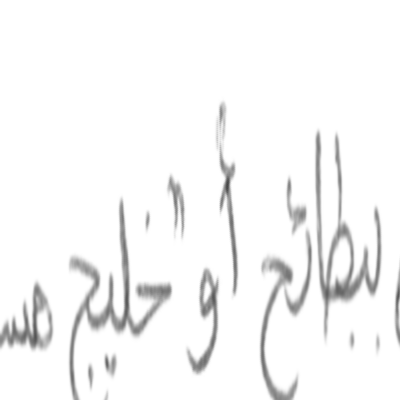 ببطائح أو "خليج